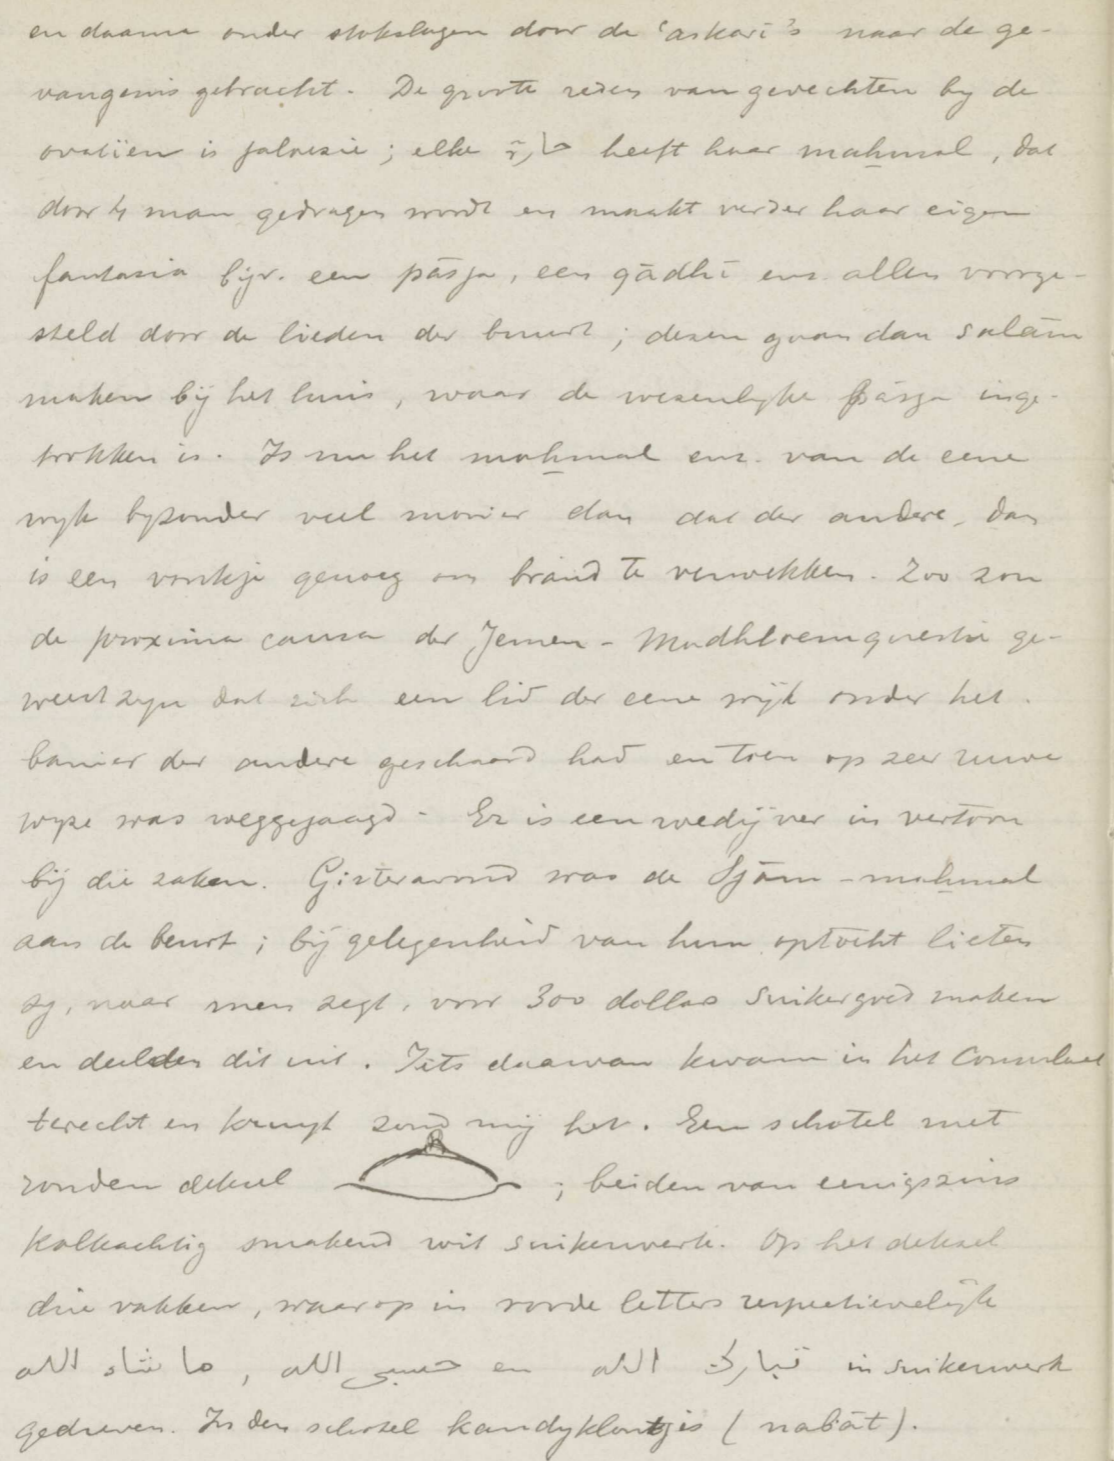 en daarna onder stokslagen door de ʿaskarī's naar de ge-
vangenis gebracht. De groote reden van gevechten by de
ovatiën is jaloezie; elke حارة heeft haar maḥmal, dat
door 4 man gedragen wordt en maakt verder haar eigen
fantasia bijv. een pāsja, een qādhī enz. allen voorge-
steld door de lieden der buurt; dezen gaan dan salām
maken bij het huis, waar de wezenlyke pāsja inge-
trokken is. Is nu het maḥmal enz. van de eene
wyk byzonder veel mooier dan dat der andere, dan
is een vonkje genoeg om brand te verwekken. Zoo zou
de proxima causa der Jemen-Madhloemquestie ge-
weest zyn dat zich een lid der eene wijk onder het
banier der andere geschaard had en toen op zeer ruwe
wyze was weggejaagd. Er is een wedijver in vertoon
bij die zaken. Gisteravond was de Sjām-maḥmal
aan de beurt; bij gelegenheid van hun optocht lieten
zy, naar men zegt, voor 300 dollars suikergoed maken
en deelden dit uit. Iets daarvan kwam in het Consulaat
terecht en kruyt zond mij het. Een schotel met
ronden deksel ; beiden van eenigszins
kalkachtig smakend wit suikerwerk. Op het deksel
drie vakken, waarop in roode letters respectievelijk
ما شاء الله, حسبى الله en تبارك الله in suikerwerk
gedreven. In den schotel kandyklontjes (nabāt).